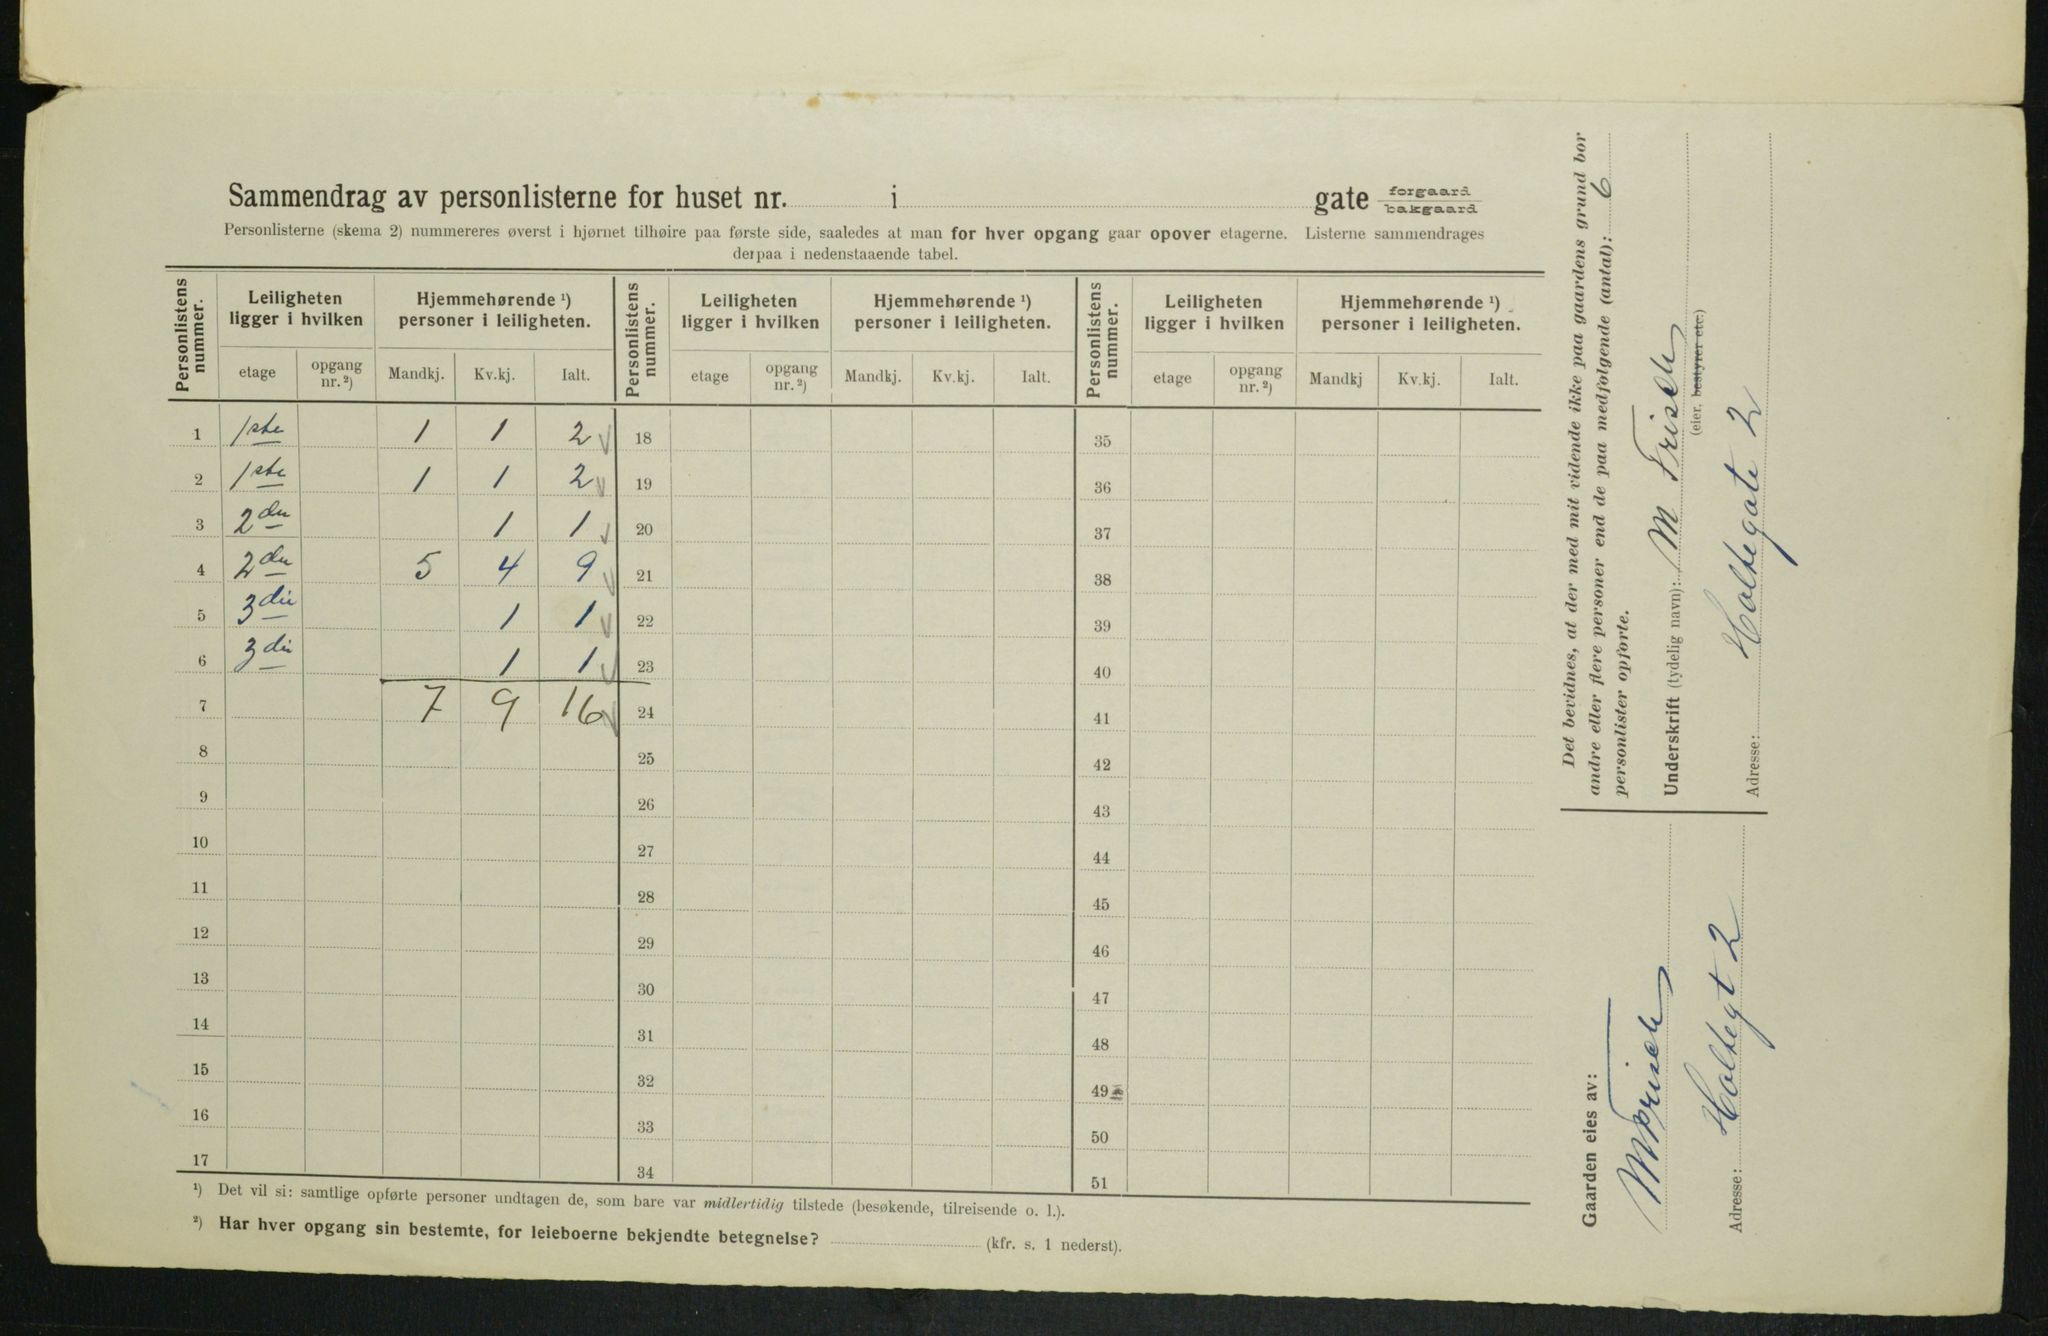 Sammendrag av personlisterne for huset nr. i gate forgaard bakgaard
Personlisterne (skema 2) nummereres øverst i hjørnet tilhøire paa første side, saaledes at man for hver opgang gaar opover etagerne. Listerne sammendrages
derpaa i nedenstaaende tabel.
Personlistens nummer. Leiligheten ligger i hvilken Hjemmehørende ¹) personer i leiligheten. Personlistens nummer. Leiligheten ligger i hvilken Hjemmehørende ¹) personer i leiligheten. Personlistens nummer. Leiligheten ligger i hvilken Hjemmehørende ¹) personer i leiligheten.
etage opgang nr.²) Mandkj. Kv.kj. Ialt. etage opgang nr.²) Mandkj. Kv.kj. Ialt. etage opgang nr.²) Mandkj Kv.kj. Ialt.
1 1ste 1 1 2 18 35
2 1ste 1 1 2 19 36
3 2den 1 1 20 37
4 2den 5 4 9 21 38
5 3die 1 1 22 39
6 3die 1 1 23 40
7 7 9 16 24 41
8 25 42
9 26 43
10 27 44
11 28 45
12 29 46
13 30 47
14 31 48
15 32 49
16 33 50
17 34 51
¹) Det vil si: samtlige opførte personer undtagen de, som bare var midlertidig tilstede (besøkende, tilreisende o. l.).
²) Har hver opgang sin bestemte, for leieboerne bekjendte betegnelse? (kfr. s. 1 nederst).
Det bevidnes, at der med mit vidende ikke paa gaardens grund bor
andre eller flere personer end de paa medfolgende (antal): 6
personlister opforte.
Underskrift (tydelig navn): M Frisch
(eier, bestyrer etc.)
Adresse: Holtegate 2
Gaarden eies av:
M Frisch
Adresse: Holtegt 2